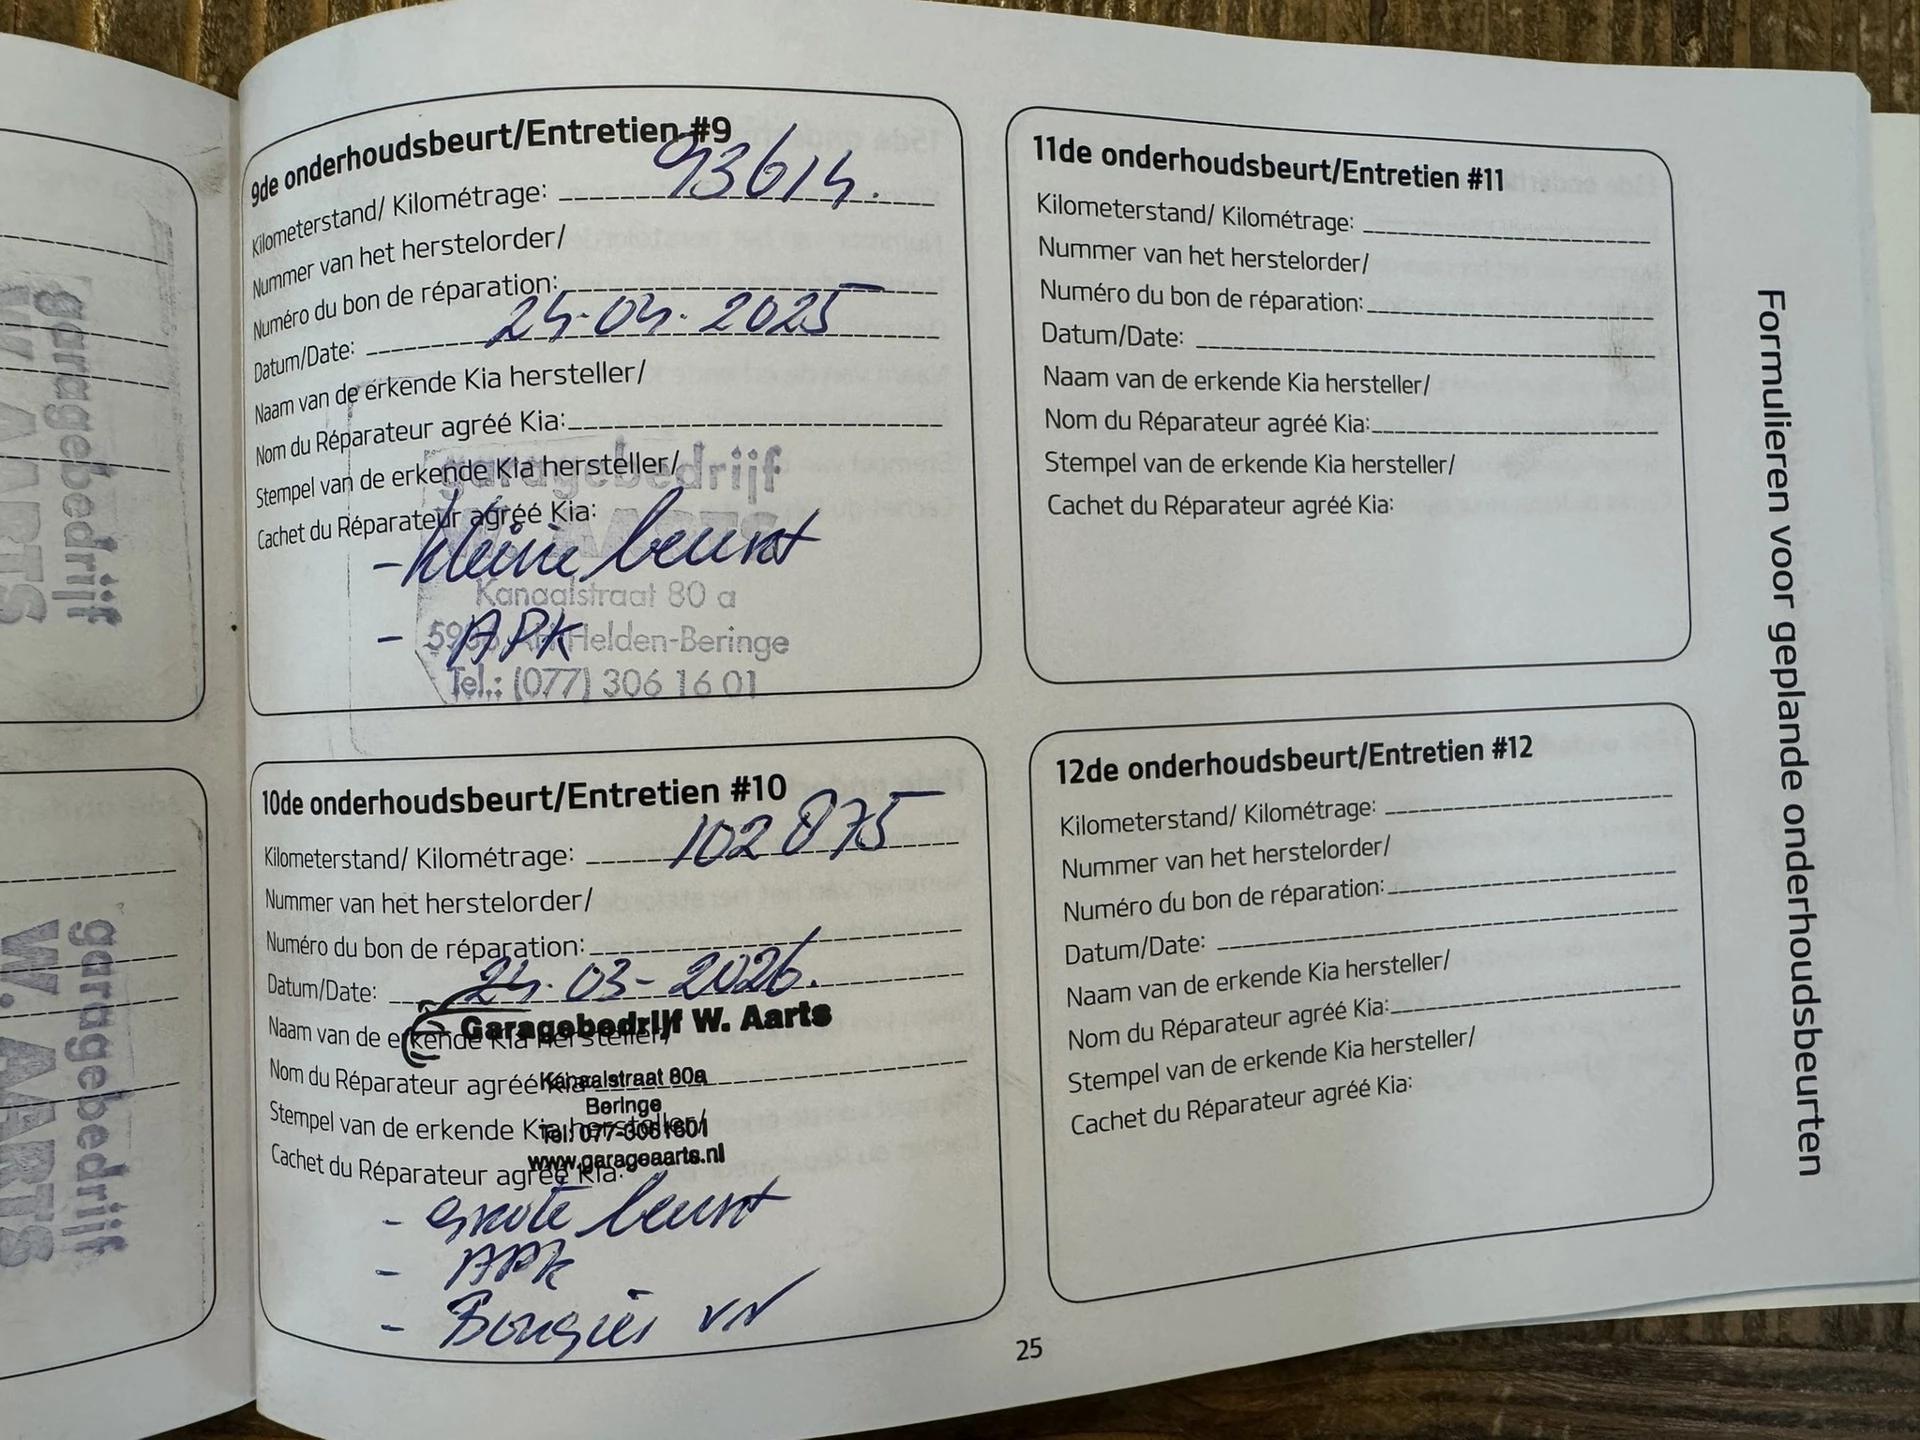 9de onderhoudsbeurt/Entretien #9
Kilometerstand/ Kilométrage: 93614.
Nummer van het herstelorder/
Numéro du bon de réparation:
Datum/Date: 24-04-2025
Naam van de erkende Kia hersteller/
Nom du Réparateur agréé Kia:
Stempel van de erkende Kia hersteller/
Cachet du Réparateur agréé Kia:
garagebedrijf
W. AARTS
- kleine beurt
Kanaalstraat 80 a
- APK
Helden-Beringe
Tel.: (077) 306 16 01
10de onderhoudsbeurt/Entretien #10
Kilometerstand/ Kilométrage: 102875
Nummer van het herstelorder/
Numéro du bon de réparation:
Datum/Date: 24-03-2026.
Garagebedrijf W. Aarts
Naam van de erkende Kia hersteller/
Nom du Réparateur agréé Kia:
Kanaalstraat 80a
Beringe
Stempel van de erkende Kia hersteller/
Tel: 077-3061601
www.garageaarts.nl
Cachet du Réparateur agréé Kia:
- grote beurt
- APK
- Bougies vv
11de onderhoudsbeurt/Entretien #11
Kilometerstand/ Kilométrage:
Nummer van het herstelorder/
Numéro du bon de réparation:
Datum/Date:
Naam van de erkende Kia hersteller/
Nom du Réparateur agréé Kia:
Stempel van de erkende Kia hersteller/
Cachet du Réparateur agréé Kia:
12de onderhoudsbeurt/Entretien #12
Kilometerstand/ Kilométrage:
Nummer van het herstelorder/
Numéro du bon de réparation:
Datum/Date:
Naam van de erkende Kia hersteller/
Nom du Réparateur agréé Kia:
Stempel van de erkende Kia hersteller/
Cachet du Réparateur agréé Kia:
Formulieren voor geplande onderhoudsbeurten
25
garagebedrijf
W. AARTS
garagebedrijf
W. AARTS